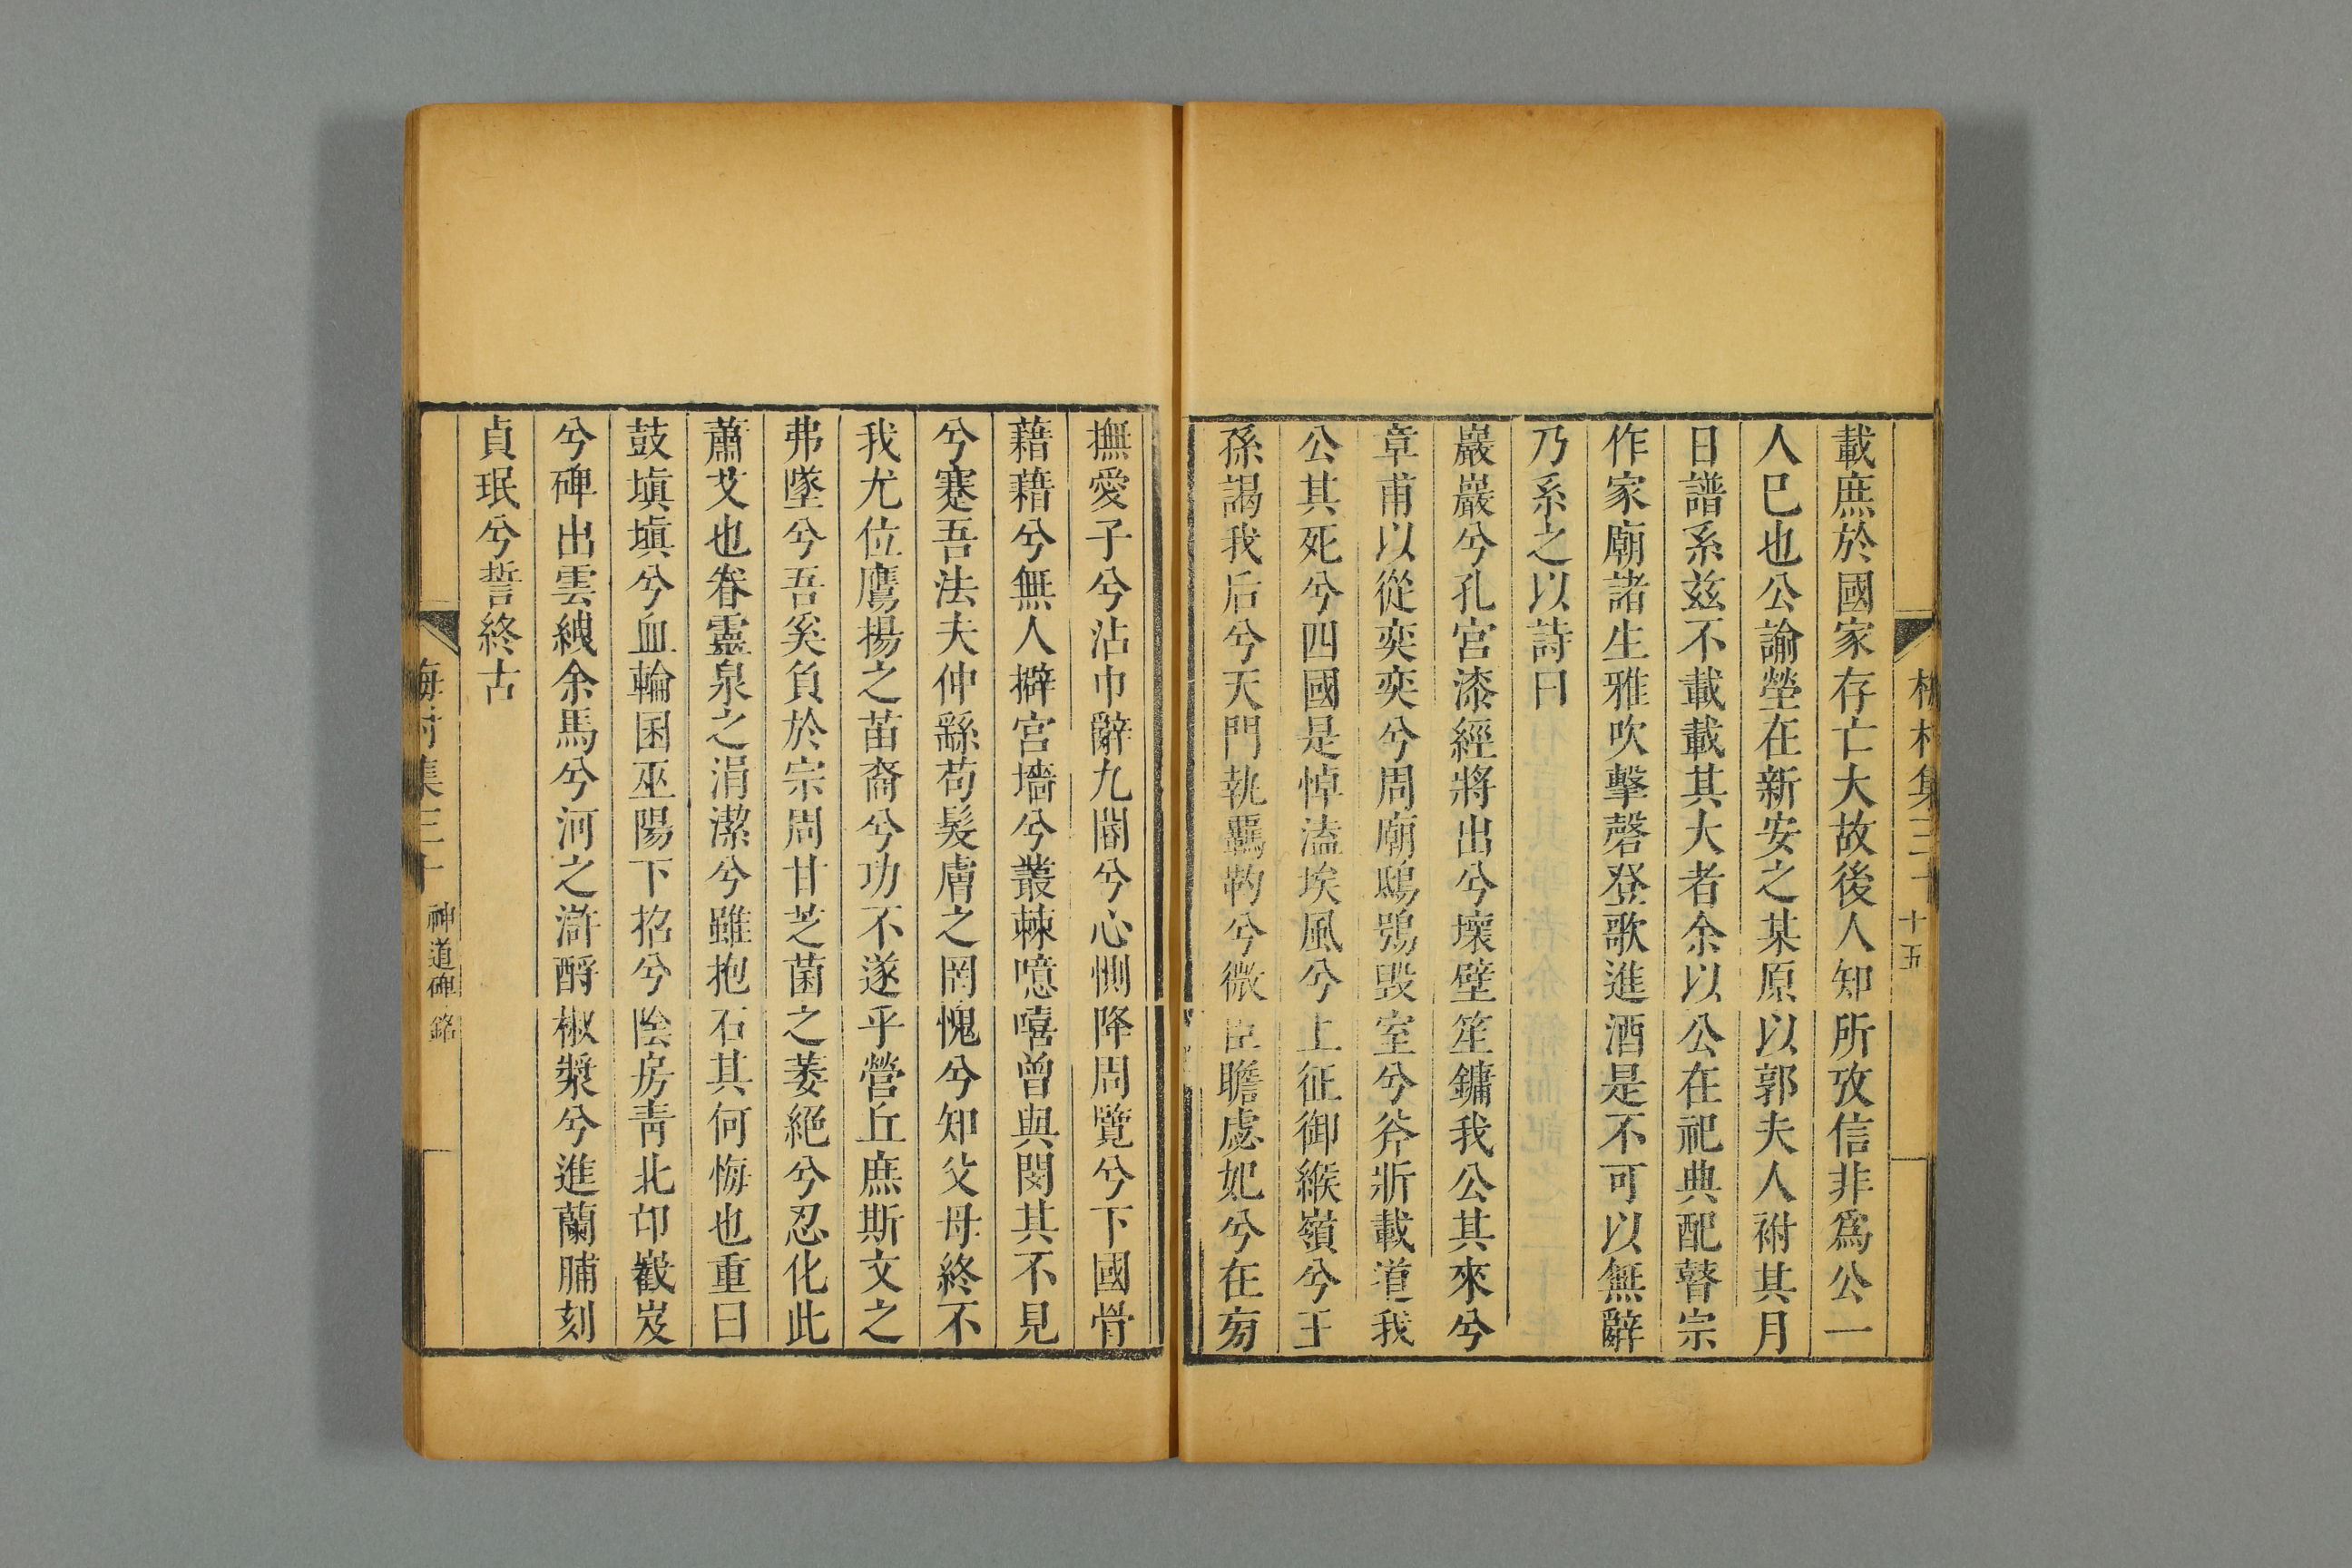 載庶於國家存亡大故後人知所攷信非爲公一
人巳也公諭塋在新安之某原以郭夫人祔其月
日譜系玆不載載其大者余以公在祀典配瞽宗
作家廟諸生雅吹擊磬登歌進酒是不可以無辭
乃系之以詩曰
巖巖兮孔宮漆經將出兮壞壁笙鏞我公其來兮
章甫以從奕奕兮周廟鴟鴞毀室兮斧斨載道我
公其死兮四國是悼溘埃風兮上征御緱嶺兮王
孫謁我后兮天門執羈靮兮微臣瞻虙妃兮在㫄
撫愛子兮沾巾辭九閽兮心惻降周覽兮下國骨
藉藉兮無人擗宮墻兮叢棘噫嘻曾與閔其不見
兮蹇吾法夫仲繇苟髮膚之罔愧兮知父母終不
我尤位鷹揚之苗裔兮功不遂乎營丘庶斯文之
弗墜兮吾奚負於宗周甘芝菌之萎絕兮忍化此
蕭艾也眷靈泉之涓潔兮雖抱石其何悔也重曰
鼓塡塡兮血輪囷巫陽下招兮陰房靑北邙嶻岌
兮碑出雲紲余馬兮河之滸酹椒漿兮進蘭脯刻
貞珉兮誓終古
梅村集三十
十五
梅村集三十
神道碑 銘